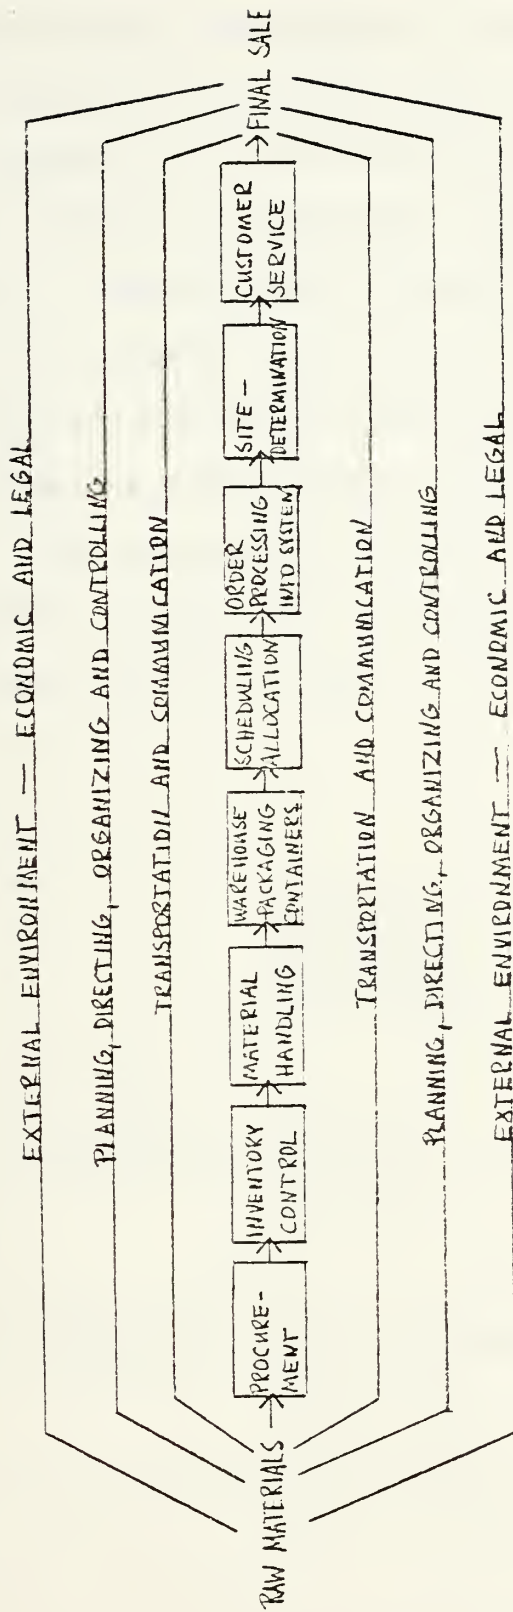 EXTERNAL ENVIRONMENT — ECONOMIC AND LEGAL
PLANNING, DIRECTING, ORGANIZING AND CONTROLLING
TRANSPORTATION AND COMMUNICATION
RAW MATERIALS
PROCURE-
MENT
INVENTORY
CONTROL
MATERIAL
HANDLING
WAREHOUSE
PACKAGING
CONTAINERS
SCHEDULING
ALLOCATION
ORDER
PROCESSING
INTO SYSTEM
SITE —
DETERMINATION
CUSTOMER
SERVICE
FINAL SALE
TRANSPORTATION AND COMMUNICATION
PLANNING, DIRECTING, ORGANIZING AND CONTROLLING
EXTERNAL ENVIRONMENT — ECONOMIC AND LEGAL